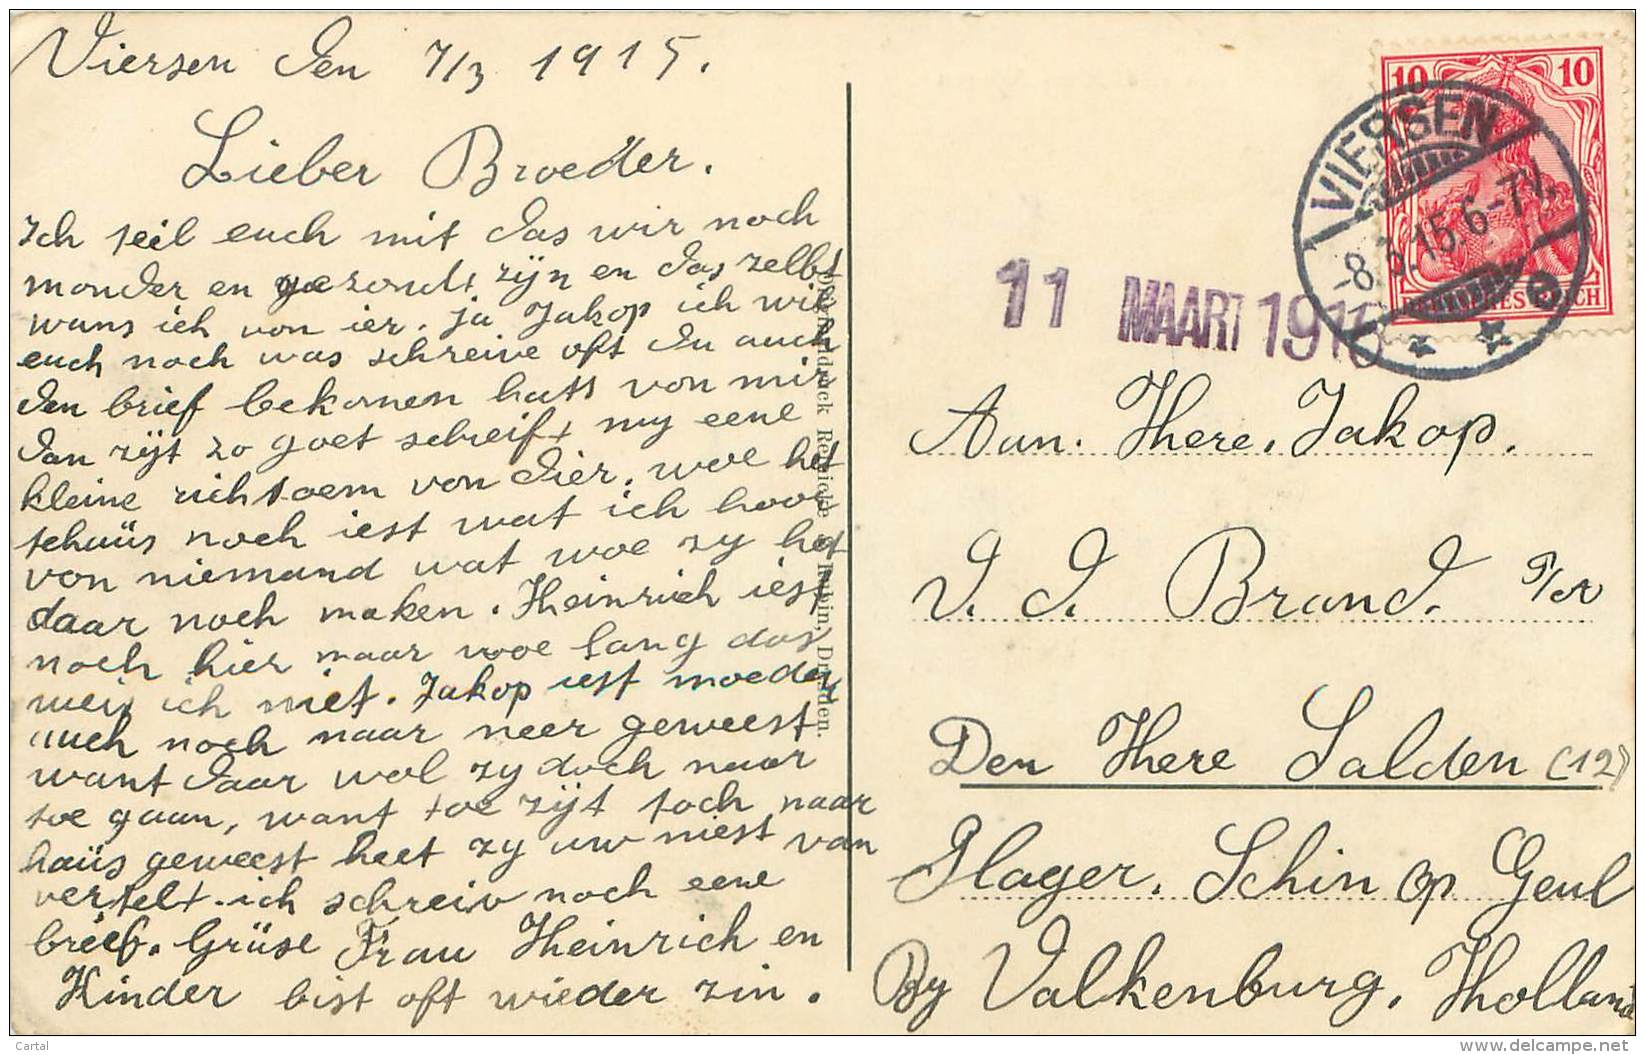 Viersen den 7/3 1915.
Lieber Broeder.
Ich teil euch mit das wir noch
monder en gezond zijn en das zelbt
wuns ich von ier. ja Jakop ich wil
euch noch was schreive oft du auch
den brief bekomen hatt von mir
dan zijt zo goet schreift my eene
kleine richtoem von dier, woe het
tehaüs noch iest wat ich hoor
von niemand wat woe zy het
daar noch maken. Heinrich iest
noch hier maar woe lang das
weis ich niet. Jakop iest moeder
auch noch naar neer geweest
want daar wol zy doch naar
toe gaan, want toe zijt toch naar
haüs geweest heet zy uw niest van
vertelt. ich schreiv noch eene
brief. Grüse Frau Heinrich en
Kinder bist oft wieder zin.
10
10
VIERSEN
-8.3.15.6-7V.
DEUTSCHES REICH
11 MAART 191
Aan. Here. Jakop.
J. J. Brand.
Den Here Salden (12)
Plager. Schin op Geul
By Valkenburg. Holland
Dresden.
Cartal
delcampe.net